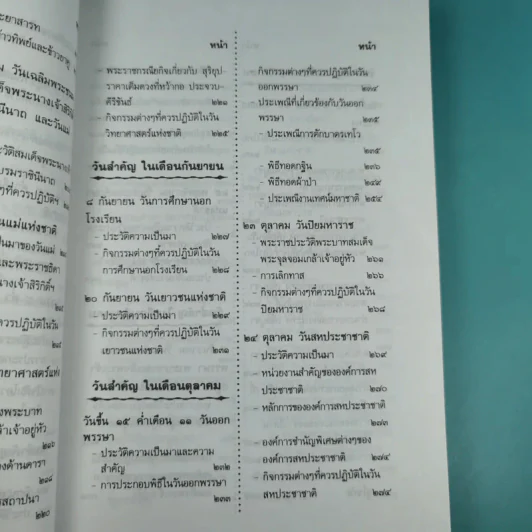 ะยาสารท
ข้าวทิพย์และข้าวยาคู
ม วันเฉลิมพระชน
ด็จพระนางเจ้าสิริกิ
นีนาถ และวันแม่
วัติสมเด็จพระนางเจ้
บรมราชินีนาถ
ๆที่ควรปฏิบัติฯ
นแม่แห่งชาติ
ป็นมาของวันแม่
และพระราชธิดา
างเจ้าสิริกิติ์ฯ
ควรปฏิบัติใน
ทยาศาสตร์แห่ง
งพระบาท
ล้าเจ้าอยู่หัว
๒๑๖
างด้านดารา
รสถาปนา
หน้า
- พระราชกรณียกิจเกี่ยวกับ สุริยุป-
ราคาเต็มดวงที่หว้ากอ ประจวบ-
คีรีขันธ์ ๒๒๑
- กิจกรรมต่างๆที่ควรปฏิบัติในวัน
วิทยาศาสตร์แห่งชาติ ๒๒๕
วันสำคัญ ในเดือนกันยายน
๘ กันยายน วันการศึกษานอก
โรงเรียน
- ประวัติความเป็นมา ๒๒๗
- กิจกรรมต่างๆที่ควรปฏิบัติในวัน
การศึกษานอกโรงเรียน ๒๒๘
๒๐ กันยายน วันเยาวชนแห่งชาติ
- ประวัติความเป็นมา ๒๒๙
- กิจกรรมต่างๆที่ควรปฏิบัติในวัน
เยาวชนแห่งชาติ ๒๓๑
วันสำคัญ ในเดือนตุลาคม
วันขึ้น ๑๕ ค่ำเดือน ๑๑ วันออก
พรรษา
- ประวัติความเป็นมาและความ
สำคัญ ๒๓๒
- การประกอบพิธีในวันออกพรรษา
๒๓๓
หน้า
- กิจกรรมต่างๆที่ควรปฏิบัติในวัน
ออกพรรษา ๒๓๔
- ประเพณีที่เกี่ยวข้องกับวันออก
พรรษา ๒๓๕
- ประเพณีการตักบาตรเทโว
๒๓๕
- พิธีทอดกฐิน ๒๓๖
- พิธีทอดผ้าป่า ๒๔๙
- ประเพณีงานเทศน์มหาชาติ ๒๕๔
๒๓ ตุลาคม วันปิยมหาราช
- พระราชประวัติพระบาทสมเด็จ
พระจุลจอมเกล้าเจ้าอยู่หัว ๒๖๑
- การเลิกทาส ๒๖๖
- กิจกรรมต่างๆที่ควรปฏิบัติในวัน
ปิยมหาราช ๒๖๘
๒๔ ตุลาคม วันสหประชาชาติ
- ประวัติความเป็นมา ๒๖๙
- หน่วยงานสำคัญขององค์การสห
ประชาชาติ ๒๗๐
- หลักการขององค์การสหประชาชาติ
๒๗๓
- องค์การชำนัญพิเศษต่างๆของ
องค์การสหประชาชาติ ๒๗๔
- กิจกรรมต่างๆที่ควรปฏิบัติในวัน
สหประชาชาติ ๒๗๔